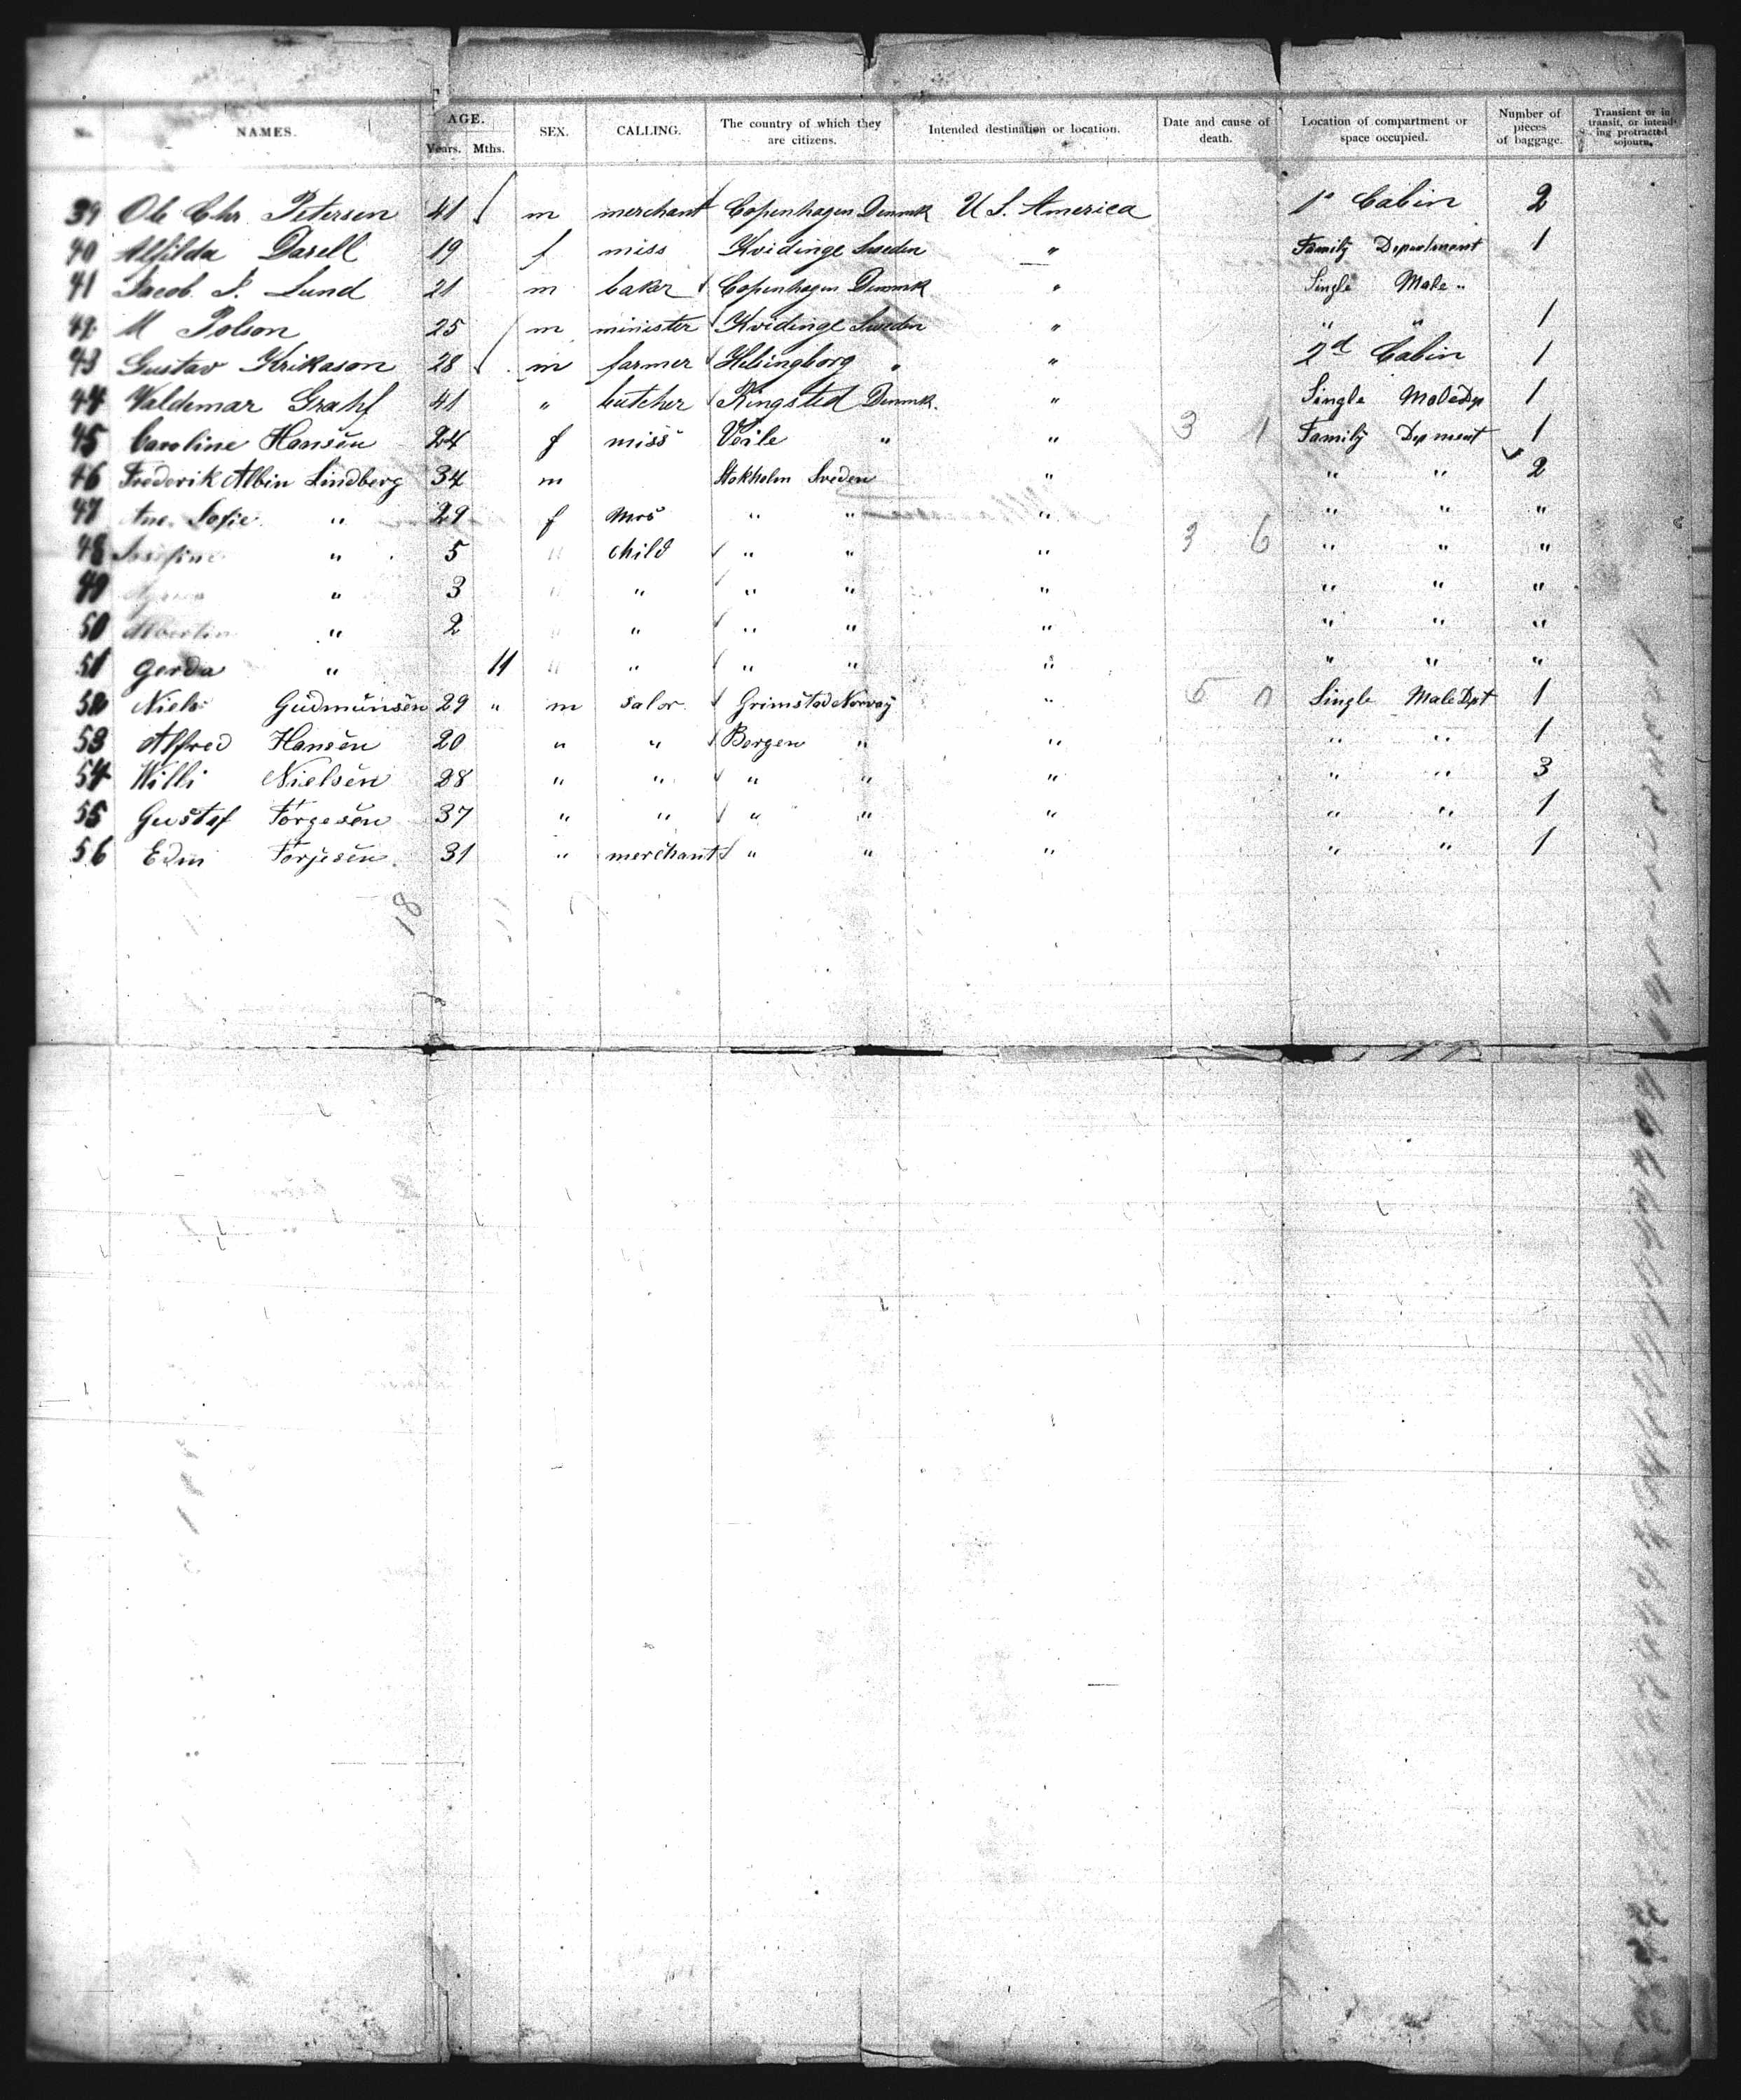 No. NAMES. AGE. Years. Mths. SEX. CALLING. The country of which they are citizens. Intended destination or location. Date and cause of death. Location of compartment or space occupied. Number of pieces of baggage. Transient or in transit, or intending protracted sojourn.
39 Ole Chr. Petersen 41 m merchant Copenhagen Denmk U S. America 1° Cabin 2
40 Alfilda Darell 19 f miss Kvidinge Sweden " Family Department 1
41 Jacob P. Lund 21 m baker Copenhagen Denmk " Single Male "
42 M Polson 25 m minister Kvidinge Sweden " " " 1
43 Gustav Krikason 28 m farmer Helsingborg " " 2d Cabin 1
44 Valdemar Grahl 41 " butcher Ringsted Denmk. " Single Male Dp 1
45 Caroline Hansen 24 f miss Veile " " 3 1 Family Depment 1
46 Frederik Albin Lindberg 34 m Stokholm Sveden " " " 2
47 Ane Sofie " 29 f Mrs " " " " " "
48 Josefine " 5 " child " " " 3 6 " " "
49 " 3 " " " " " " " "
50 Albertin " 2 " " " " " " " "
51 Gerda " 11 " " " " " " " "
52 Niels Gudmunsen 29 " m salor Grimstad Norway " 5 0 Single Male Dpt 1
53 Alfred Hansen 20 " " Bergen " " " " 1
54 Willi Nielsen 28 " " " " " " " 3
55 Gustaf Torgesen 37 " " " " " " " 1
56 Edin Torjesen 31 " merchant " " " " " 1
18